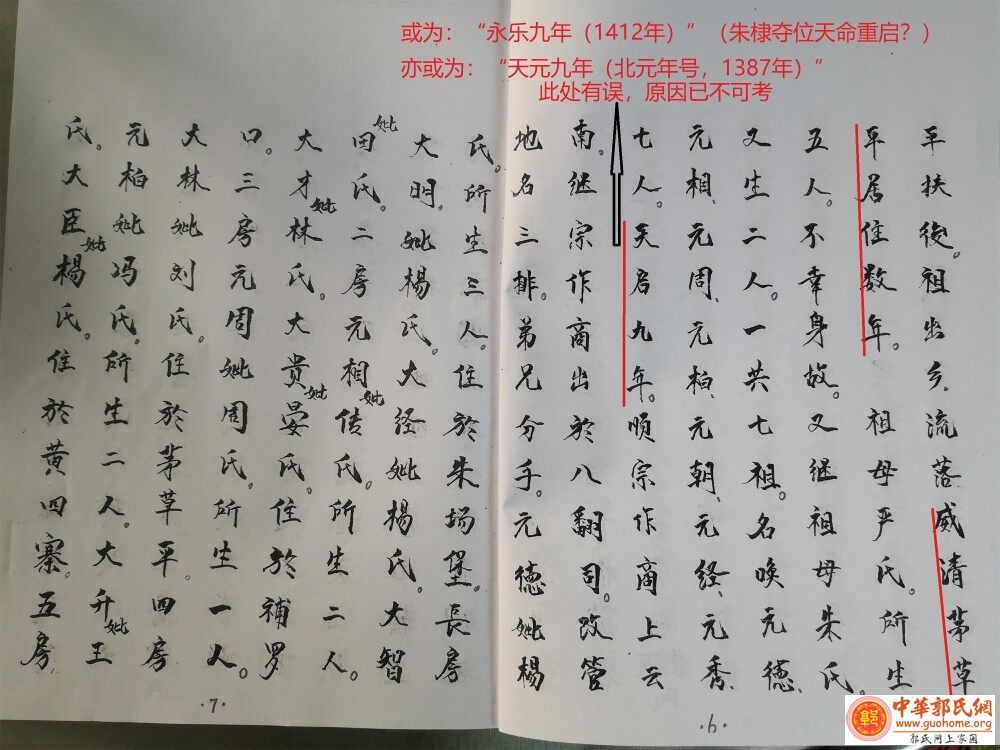 或为：“永乐九年（1412年）”（朱棣夺位天命重启？）
亦或为：“天元九年（北元年号，1387年）”
此处有误，原因已不可考
平扶後。祖出乡流落威清茅草
平居住数年。祖母严氏。所生
五人。不幸身故。又继祖母朱氏。
又生二人。一共七祖。名唤元德、
元相、元周、元柏、元朝、元经、元秀、
七人。天启九年。顺宗作商上云
南。继宗作商出於八翻司。改管
地名三排。弟兄分手。元德妣杨
氏。所生三人。住於朱场堡。長房
大明。妣楊氏。大经妣楊氏。大智
妣田氏。二房元相妣传氏。所生二人。
大才妣林氏。大贵妣晏氏。住於補罗
口。三房元周妣周氏。所生一人。
大林妣刘氏。住於茅草平。四房
元柏妣冯氏。所生二人。大升妣王
氏。大臣妣楊氏。住於黄四寨。五房
·7·
·6·
中華郭氏網
www.guohome.org
郭氏网上家园